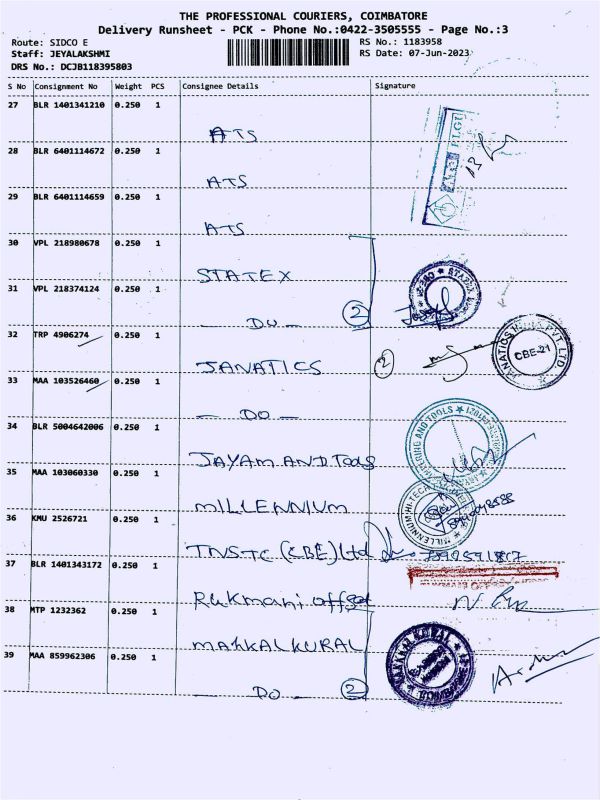 THE PROFESSIONAL COURIERS, COIMBATORE
Delivery Runsheet - PCK - Phone No.:0422-3505555 - Page No.:3
Route: SIDCO E RS No.: 1183958
Staff: JEYALAKSHMI RS Date: 07-Jun-2023
DRS No.: DCJB118395803
S No Consignment No Weight PCS Consignee Details Signature
27 BLR 1401341210 0.250 1
ATS
28 BLR 6401114672 0.250 1
ATS
29 BLR 6401114659 0.250 1
ATS
30 VPL 218980678 0.250 1
STATEX
31 VPL 218374124 0.250 1
— DO — 2
32 TRP 4906274 0.250 1
JANATICS 2
CBE-21
33 MAA 103526460 0.250 1
— DO —
34 BLR 5004642006 0.250 1
JAYAM AND Tools
35 MAA 103060330 0.250 1
MILLENNIUM
36 KMU 2526721 0.250 1
TNSTC (CBE) Ltd
37 BLR 1401343172 0.250 1
Rukmani offset
38 MTP 1232362 0.250 1
MAKKAL KURAL
39 MAA 859962306 0.250 1
— DO — 2